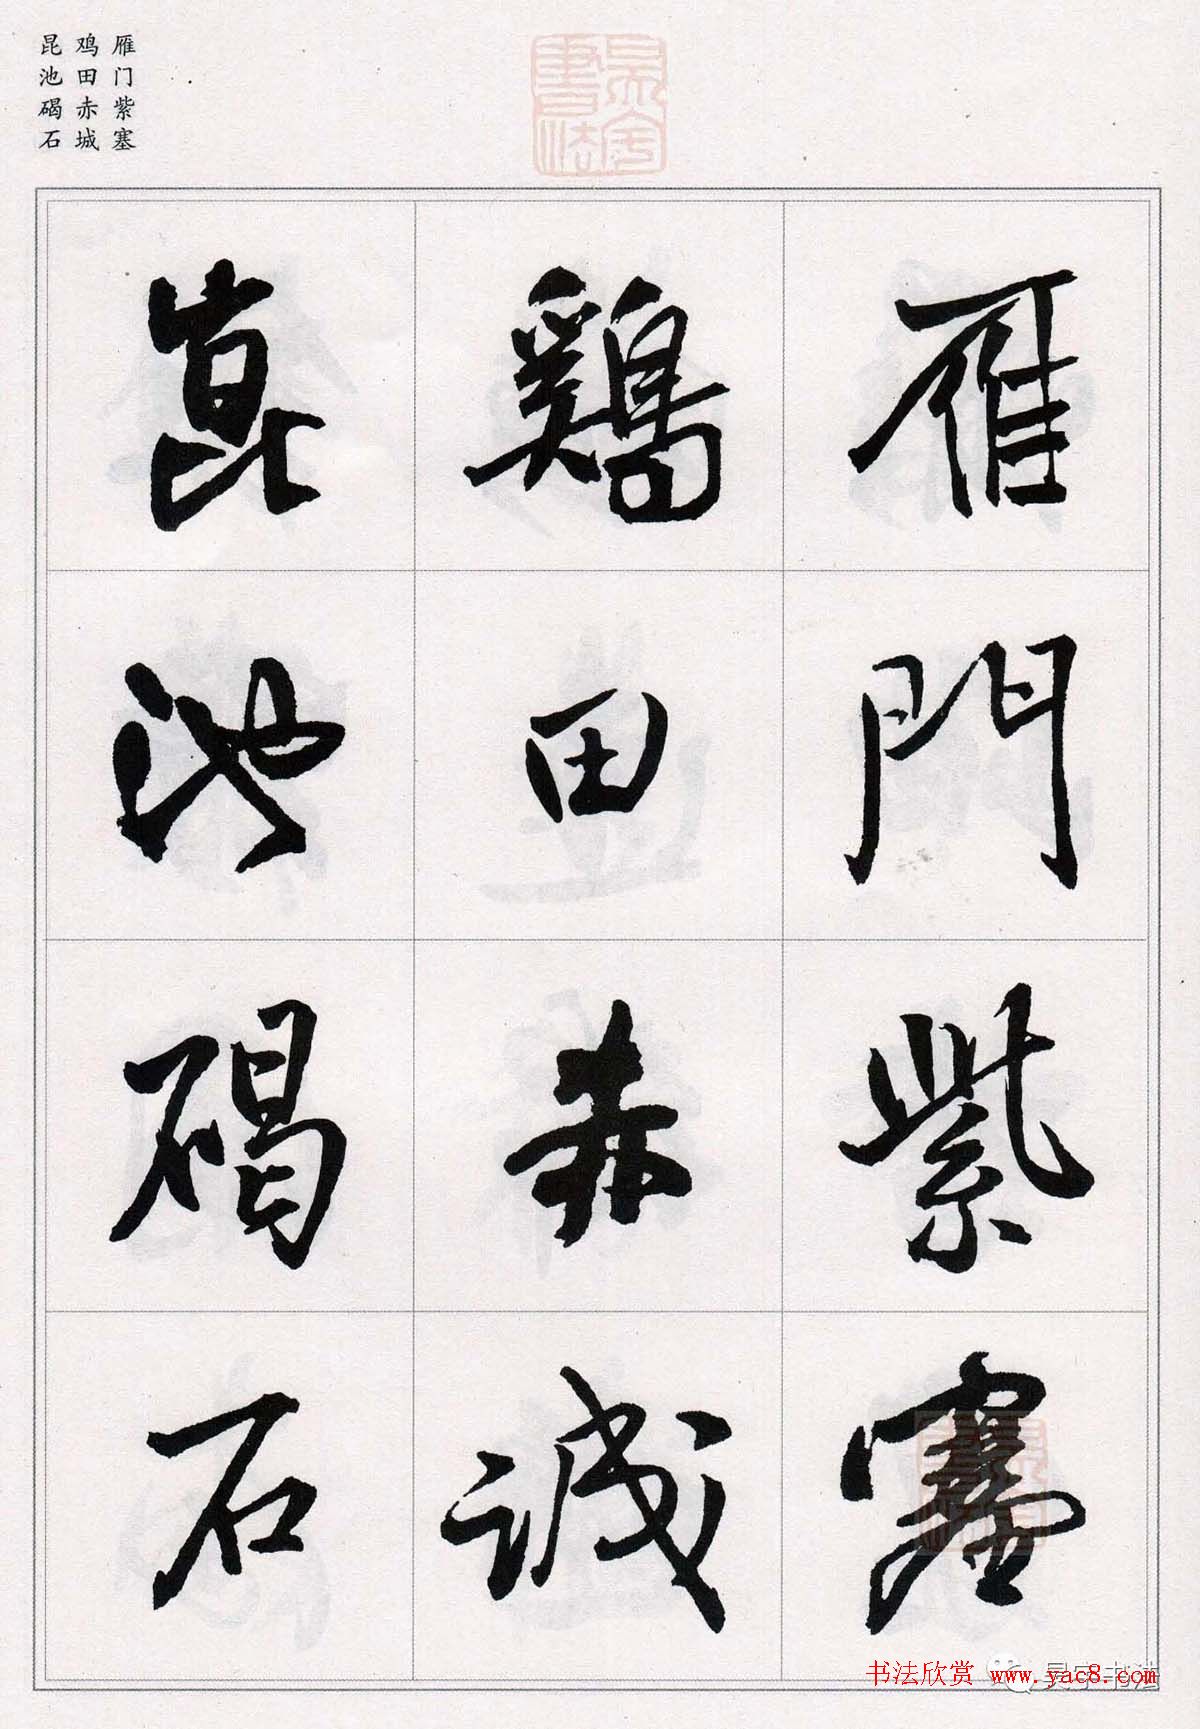 雁门紫塞
鸡田赤城
昆池碣石
雁門紫塞
鷄田赤誠
崑池碣石
书法欣赏 www.yac8.com